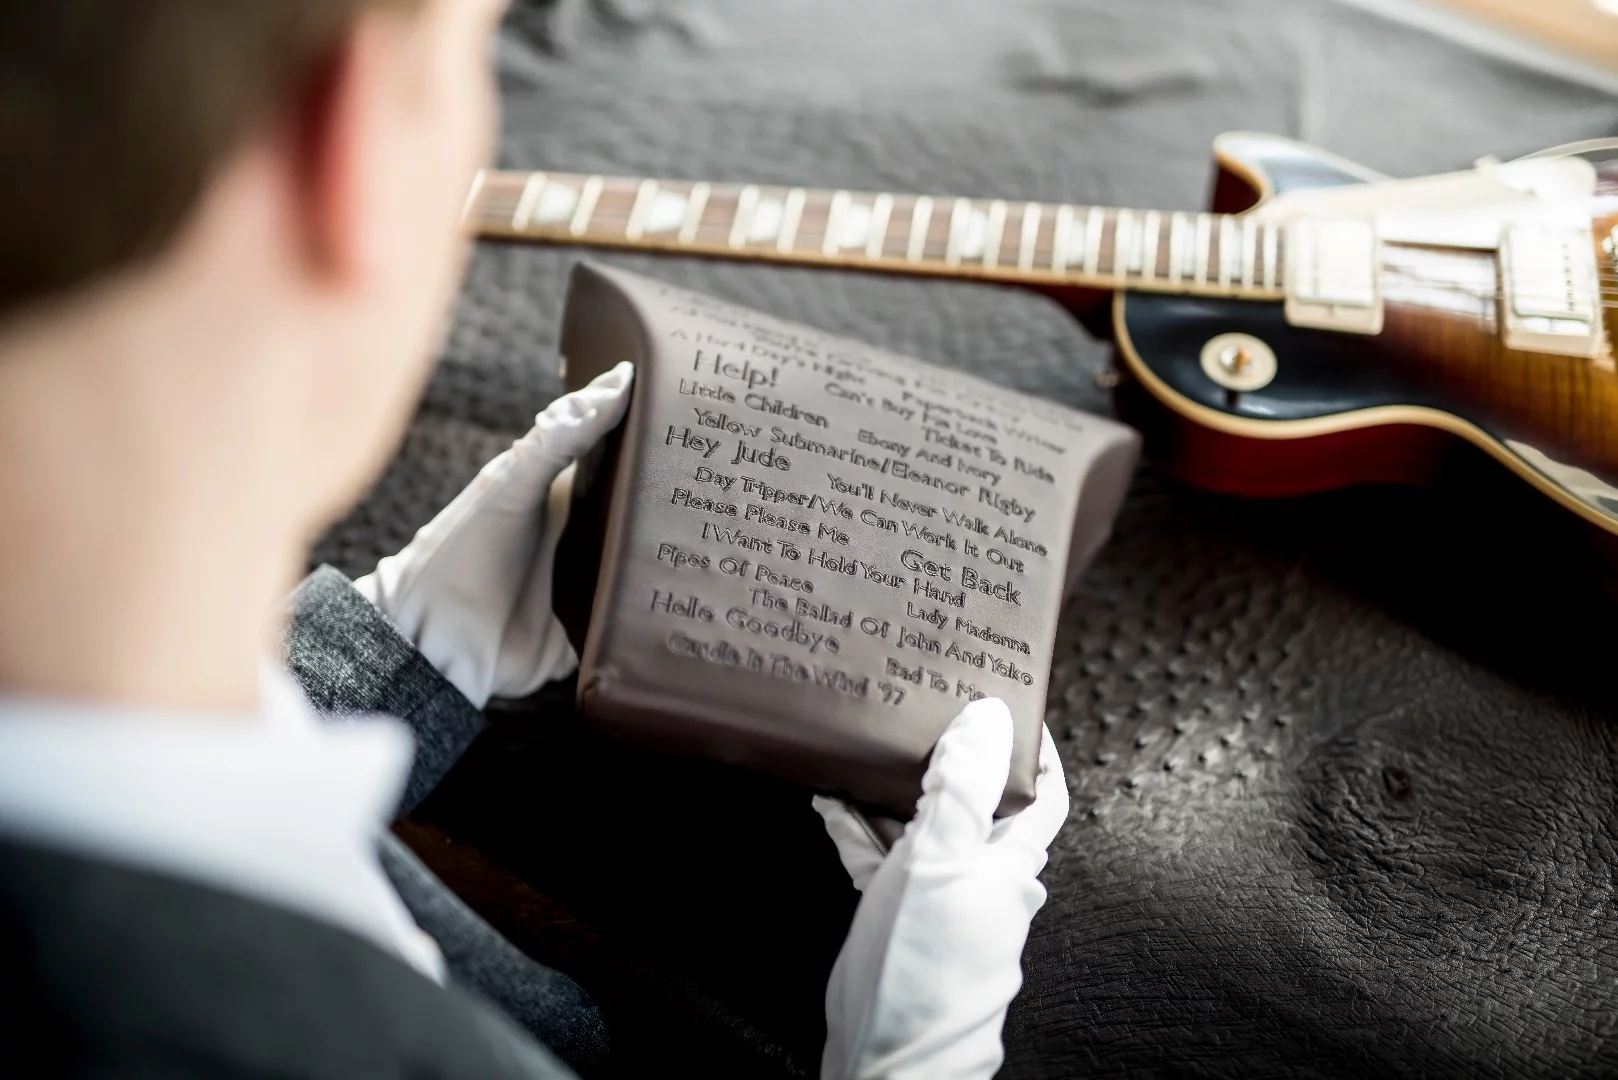 A Hard Day's Night
Paperback Writer
Help!
Can't Buy Me Love
Little Children
Ticket To Ride
Ebony And Ivory
Yellow Submarine/Eleanor Rigby
Hey Jude
You'll Never Walk Alone
Day Tripper/We Can Work It Out
Please Please Me
Get Back
I Want To Hold Your Hand
Pipes Of Peace
Lady Madonna
The Ballad Of John And Yoko
Hello Goodbye
Bad To Me
Candle In The Wind '97